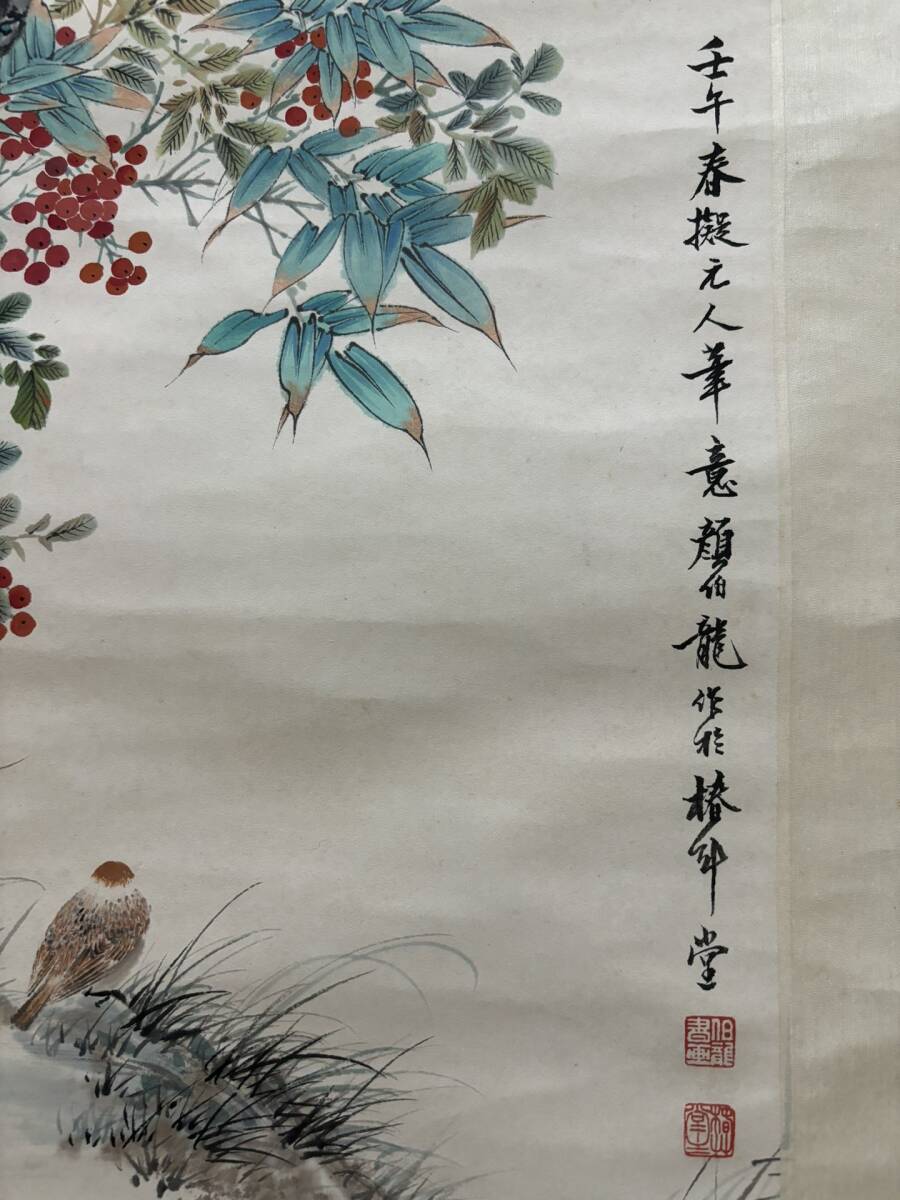 壬午春擬元人筆意顏伯龍作於椿年堂
伯龍書畫